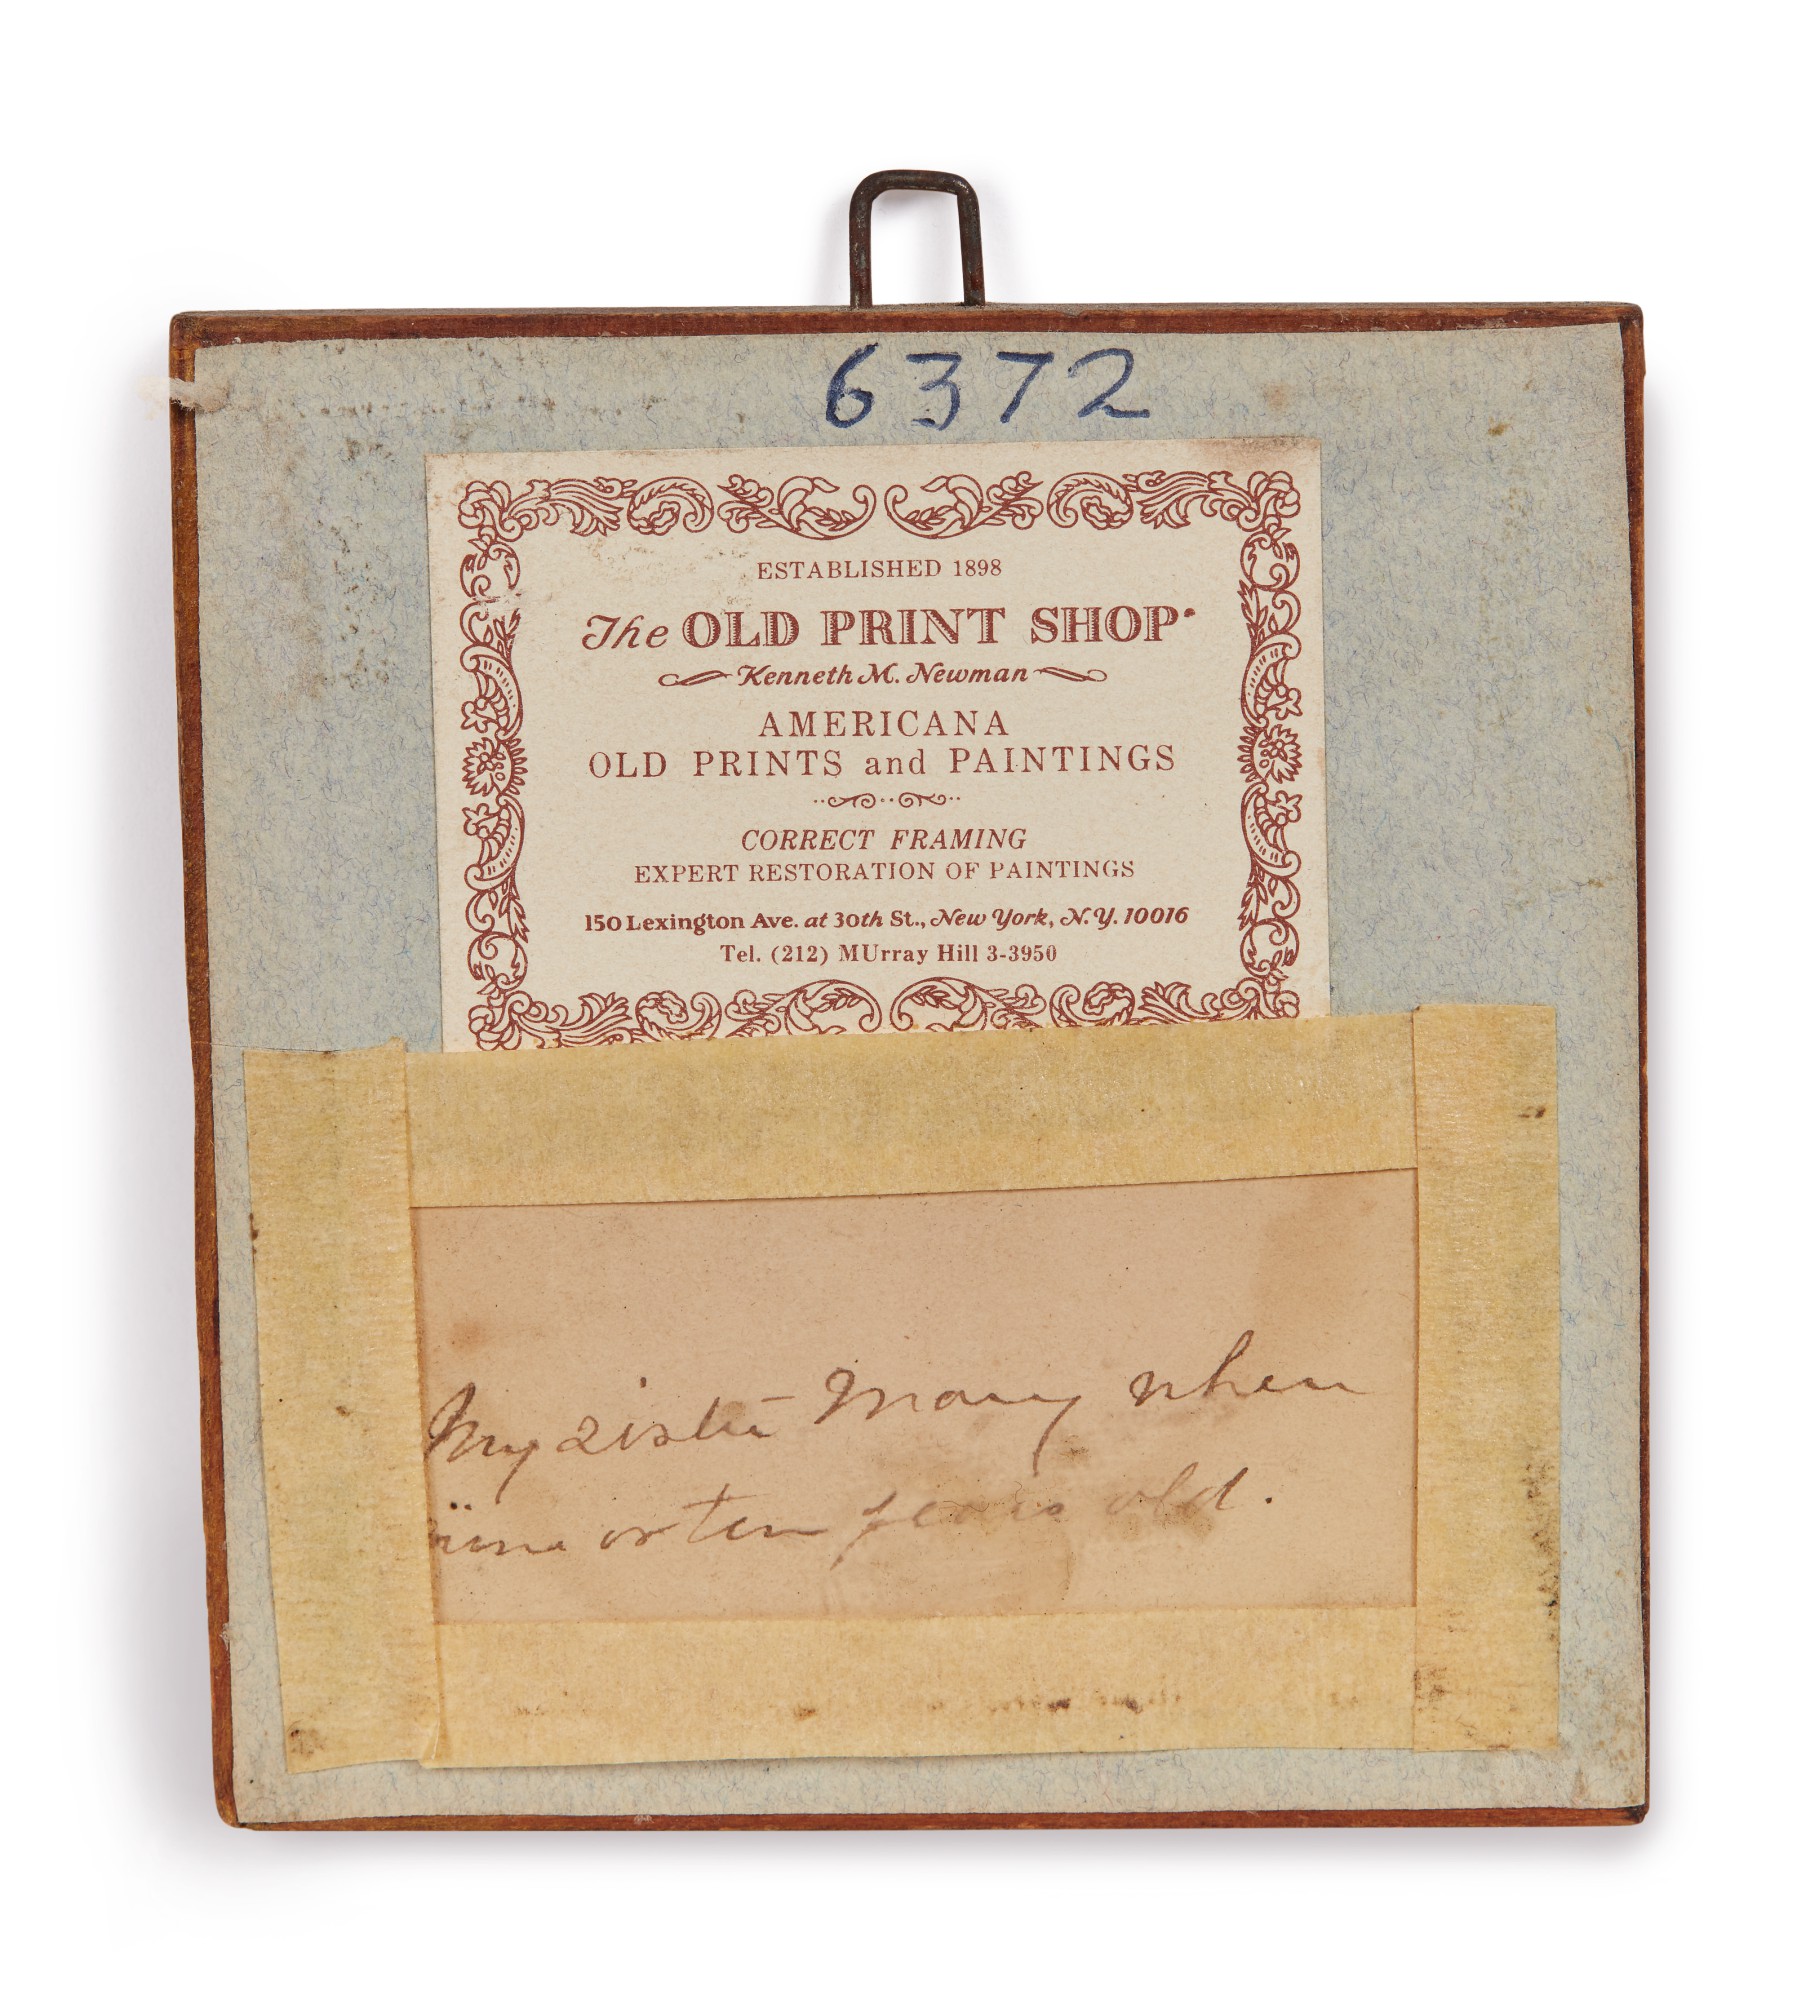 6372
ESTABLISHED 1898
The OLD PRINT SHOP
Kenneth M. Newman
AMERICANA
OLD PRINTS and PAINTINGS
CORRECT FRAMING
EXPERT RESTORATION OF PAINTINGS
150 Lexington Ave. at 30th St., New York, N.Y. 10016
Tel. (212) MUrray Hill 3-3950
My sister Mary when
nine or ten years old.